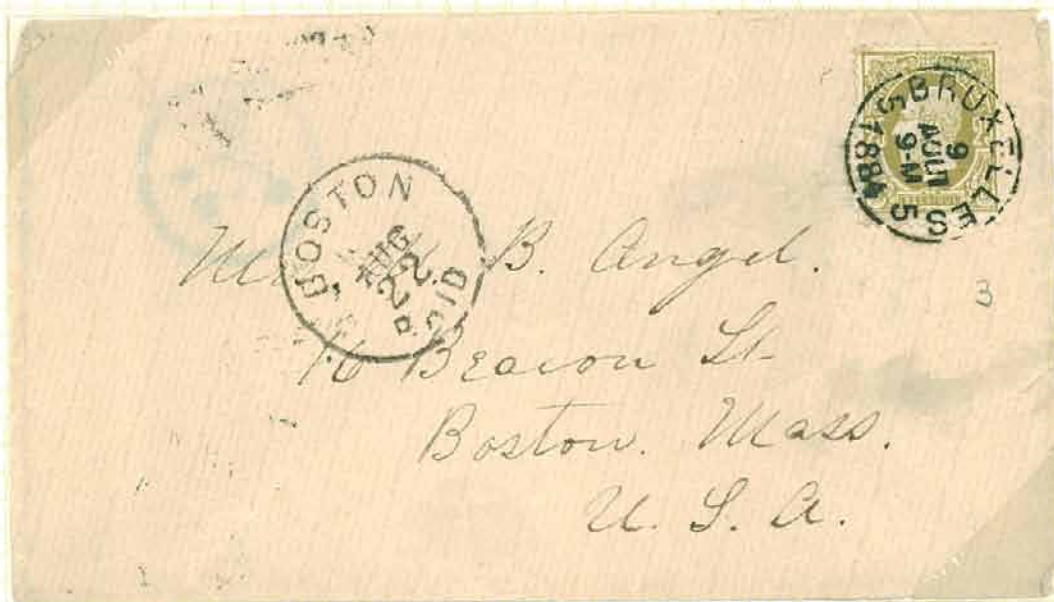 BRUXELLES 5
9
AOUT
9-M
5 1884
BOSTON
AUG
22
PAID
B. Angel.
3
16 Beacon St.
Boston. Mass.
U. S. A.